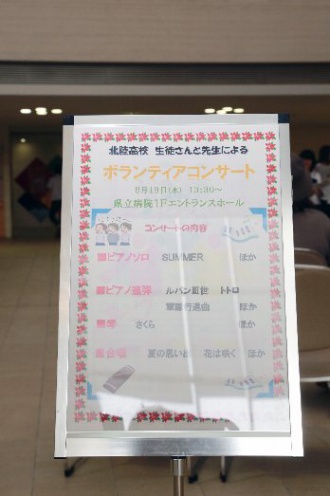 北陸高校 生徒さんと先生による
ボランティアコンサート
8月19日(水) 13:30～
県立病院1Fエントランスホール
コンサートの内容
■ピアノソロ SUMMER ほか
■ピアノ連弾 ルパン三世 トトロ
軍隊行進曲 ほか
■琴 さくら ほか
■合唱 夏の思い出 花は咲く ほか